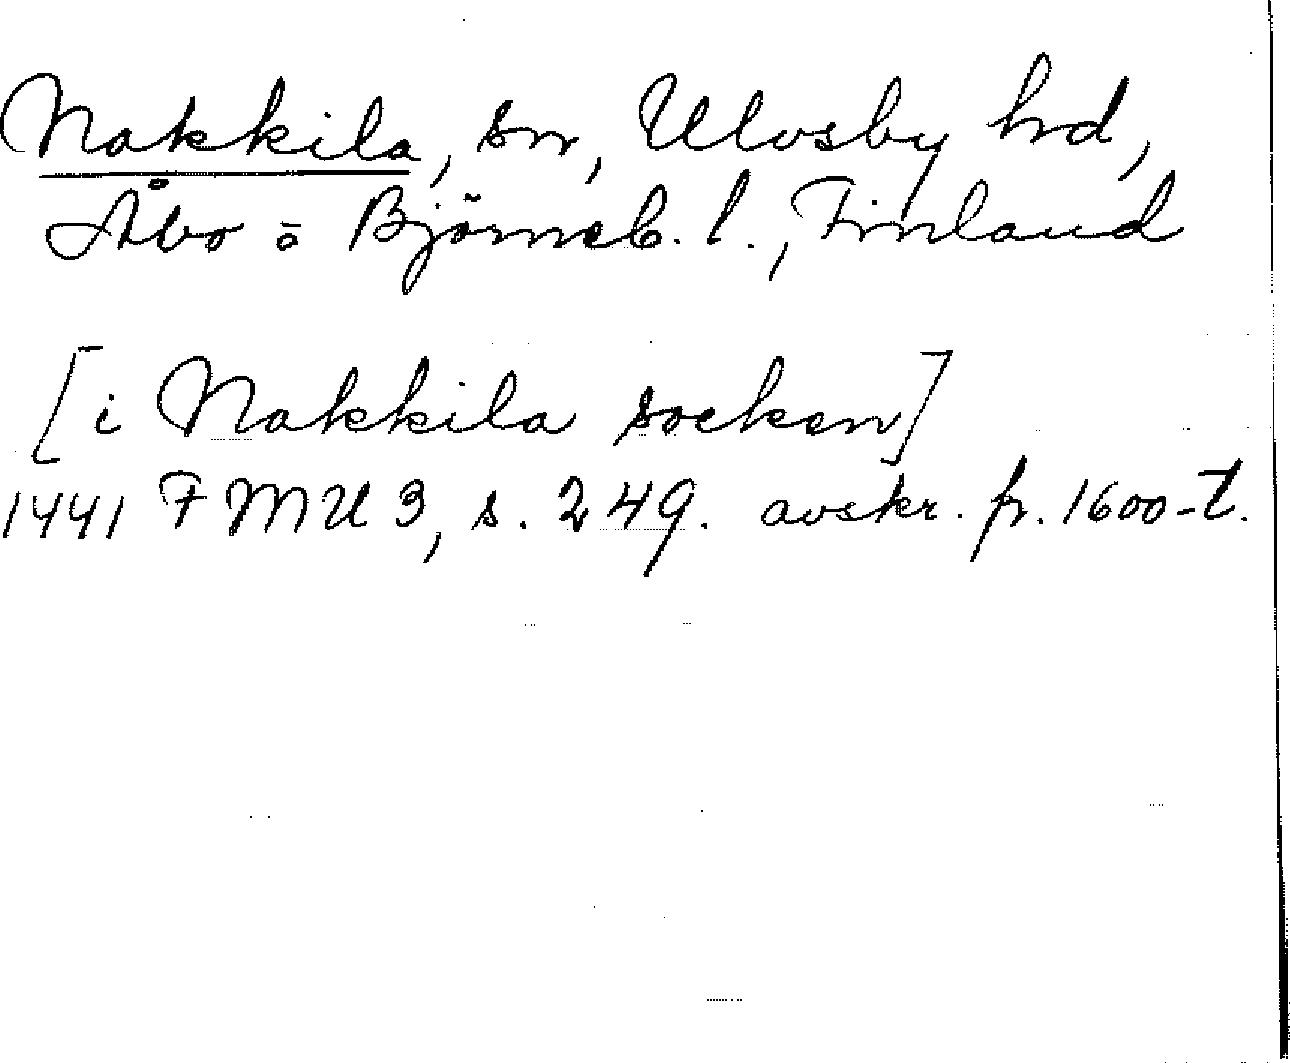 Nakkila, sn, Ulvsby hrd,
Åbo o Björneb. l., Finland
[i Nakkila socken]
1441 FMU 3, s. 249. avskr. fr. 1600-t.